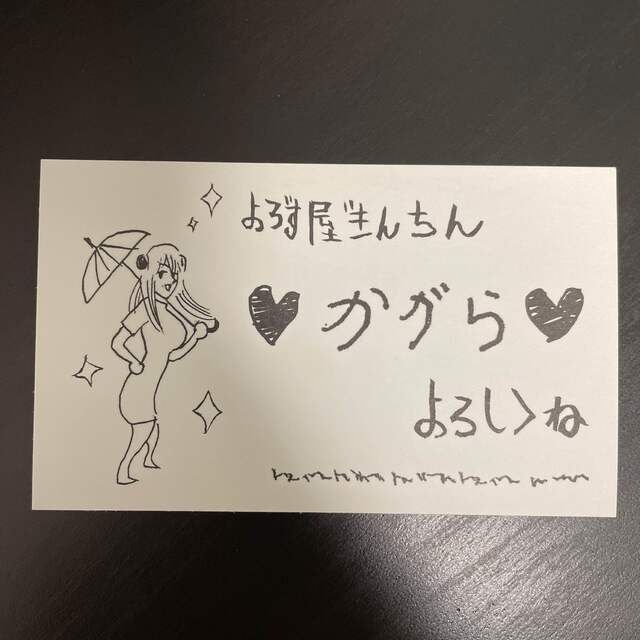 よろず屋ぎんちん
♥かぐら♥
よろしくね